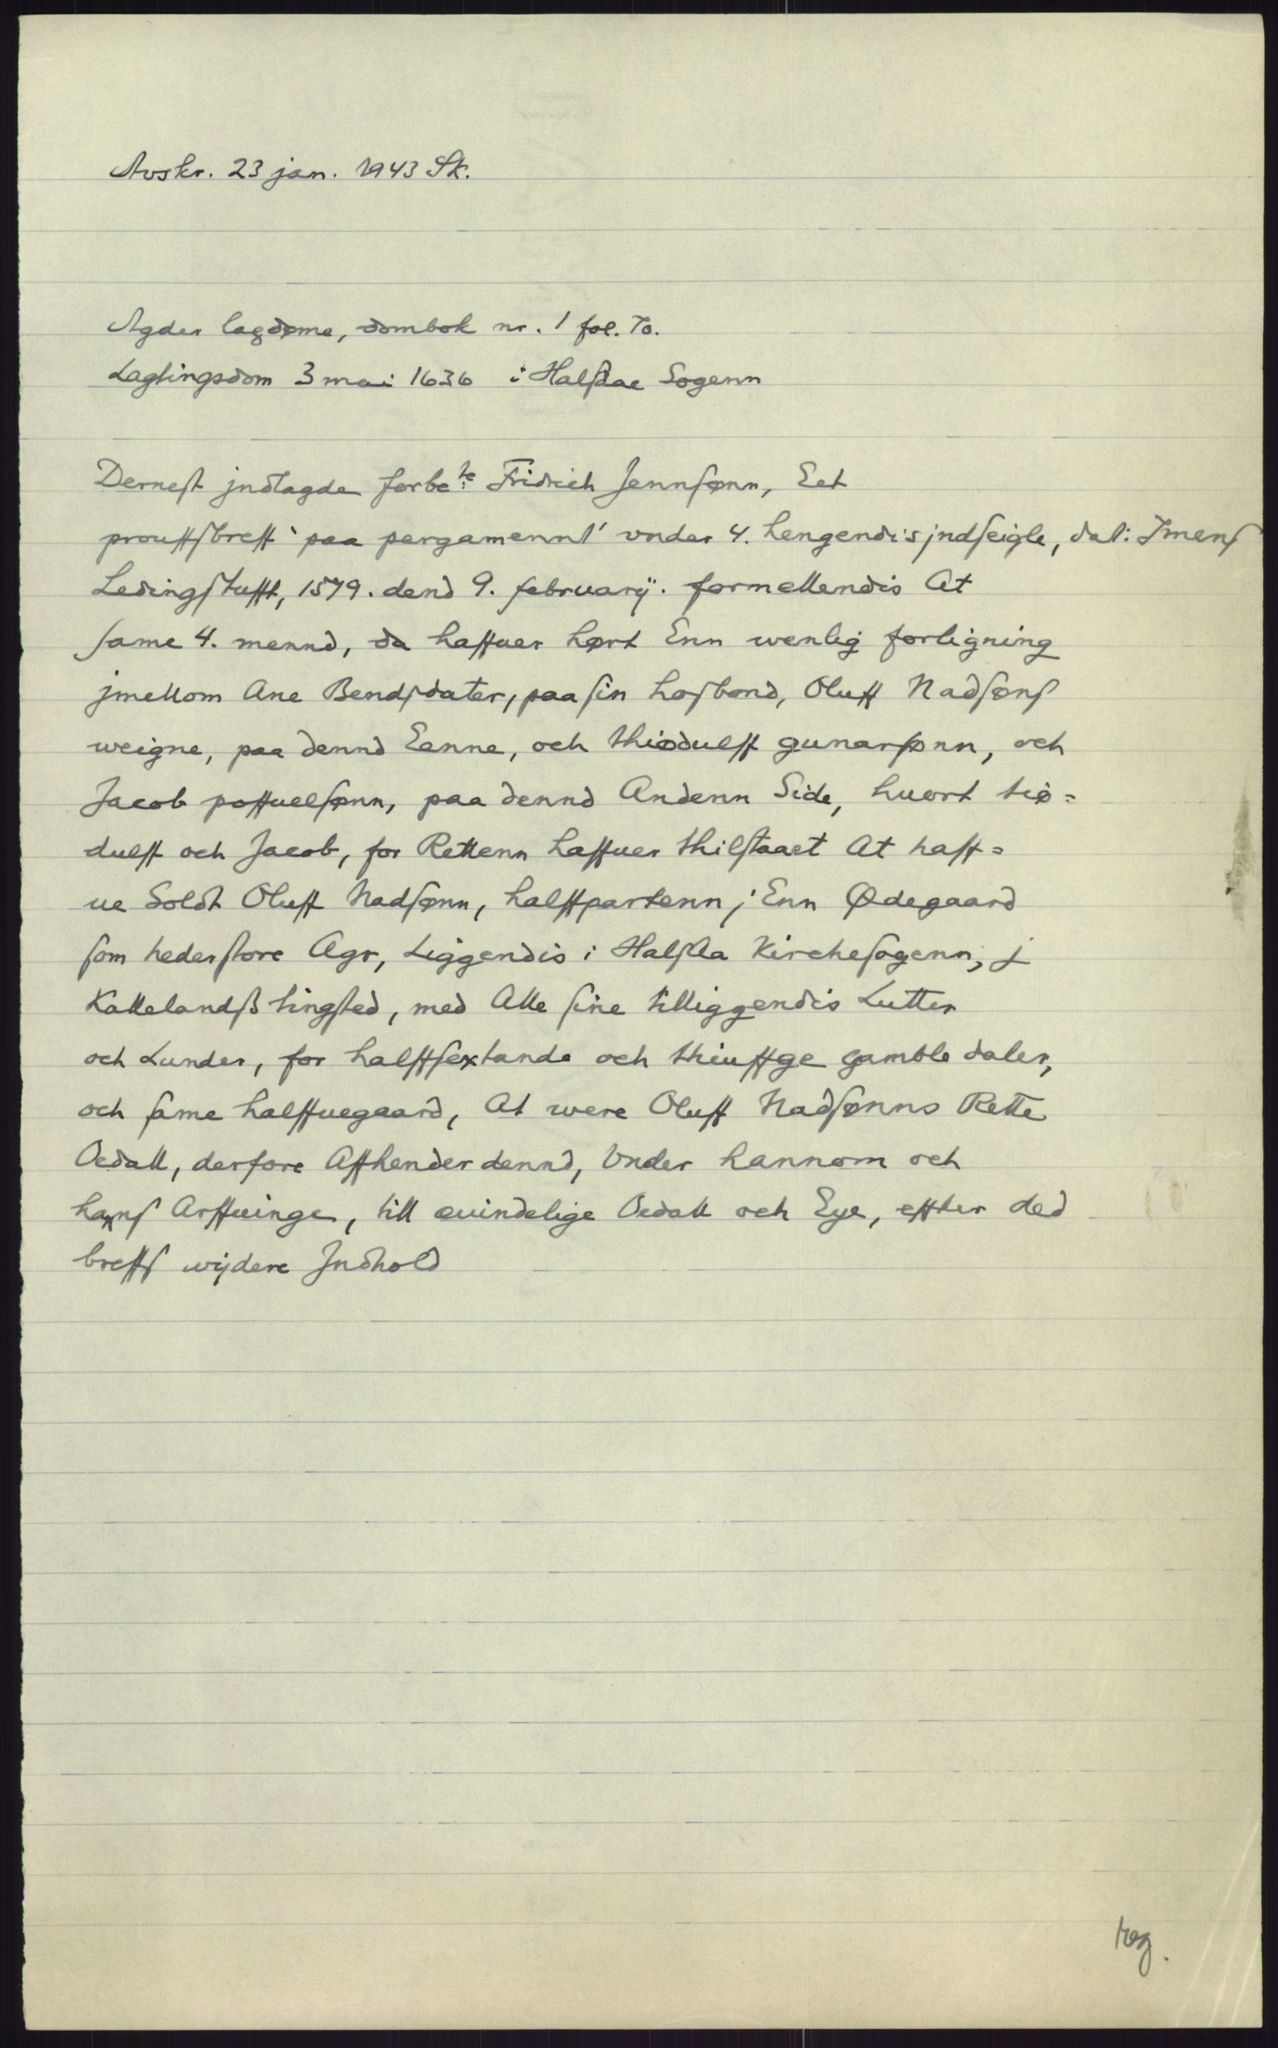 Avskr. 23 jan. 1943 Sk.
Agder lagdøme, dombok nr. 1 fol. 70.
Lagtingsdom 3 mai 1636 i Halſaae Sogenn
Derneſt jndlagde forbe:te Fridrich Jennſønn, Eet
prouffſbreff 'paa pergamennt' vnder 4. hengendis jndſeigle, dat: Imenſ
Ledingſtufft, 1579. dend 9. februarÿ. formellendis At
ſame 4. mennd, da haffuer hørt Enn wenlig forligning
jmellom Ane Bendſdater, paa ſin hoſbond, Oluff Nadſønſ
weigne, paa dennd Eenne, och thiødulff gunarſønn, och
Jacob poffuelſønn, paa dennd Andenn Side, huort tiø=
dulff och Jacob, for Rettenn haffuer thilſtaaet At haff=
ue Soldt Oluff Nadſønn, halffpartenn j Enn Ødegaard
ſom heder ſtore Agr, Liggendis i Halſaa Kircheſogenn, j
Kallelandſß tingſted, med Alle ſine tilliggendis Lutter
och Lunder, for halffſextande och thiuffge gamble daler,
och ſame halffuegaard, At were Oluff Nadſønns Rette
Oedall, derfore Affhender dennd, Vnder hannom och
hanſ Arffuinge, till euindelige Oedall och Eye, effter ded
breffſ wijdere Jndhold
reg.